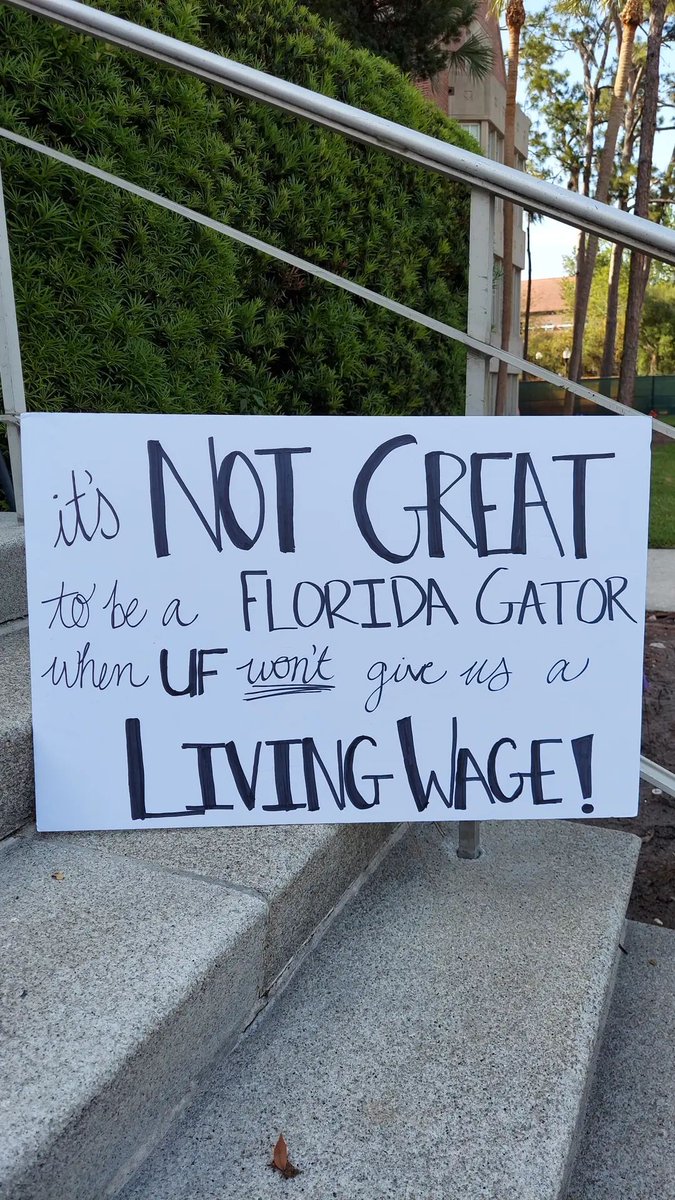 it's NOT GREAT
to be a FLORIDA GATOR
when UF won't give us a
LIVING WAGE!